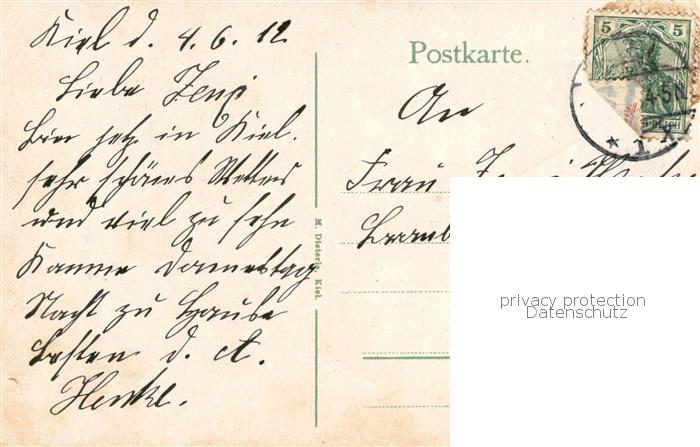 Kiel d. 4.6.12
Liebe Zenzi
Bin jetz in Kiel.
sehr schönes Wetter
und viel zu sehn
Komme Donnestag
Nacht zu Hause
Besten d. A.
Henke.
Postkarte.
An
Frau
M. Dieterle, Kiel.
5
5
REICH
4-5N
* 1 X
privacy protection
Datenschutz